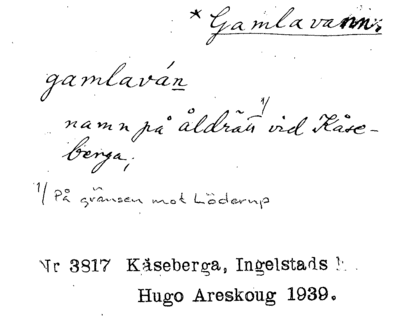 * Gamlavann.
gamlaván
namn på åldrätt ¹/ vid Kåse-
berga;
¹/ På gränsen mot Löderup
Nr 3817 Kåseberga, Ingelstads h.
Hugo Areskoug 1939.